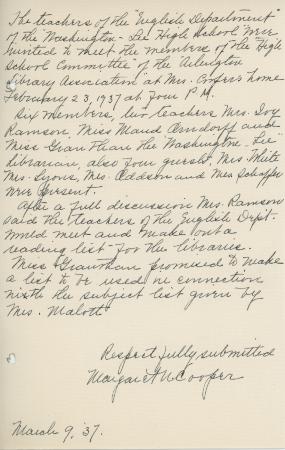 The teachers of the "English Department"
of the Washington-Lee High School were
invited to meet the members of the "High
School Committee" of the Arlington
Library Association at Mrs. Cooper's home
February 23, 1937 at four P.M.
Six members, two teachers Mrs.
Ramson, Miss Maud Orndorff and
Miss Grantham the Washington-Lee
librarian, also four guests Mrs. White
Mrs. Lyons, Mrs. Addson and Mrs Schaffer
were present.
After a full discussion Mrs. Ramson
said the teachers of the English Dept.
would meet and make out a
reading list for the libraries.
Miss Grantham promised to make
a list to be used in connection
with the subject list given by
Mrs. Malott
Respectfully submitted
Margaret N Cooper
March 9, '37.